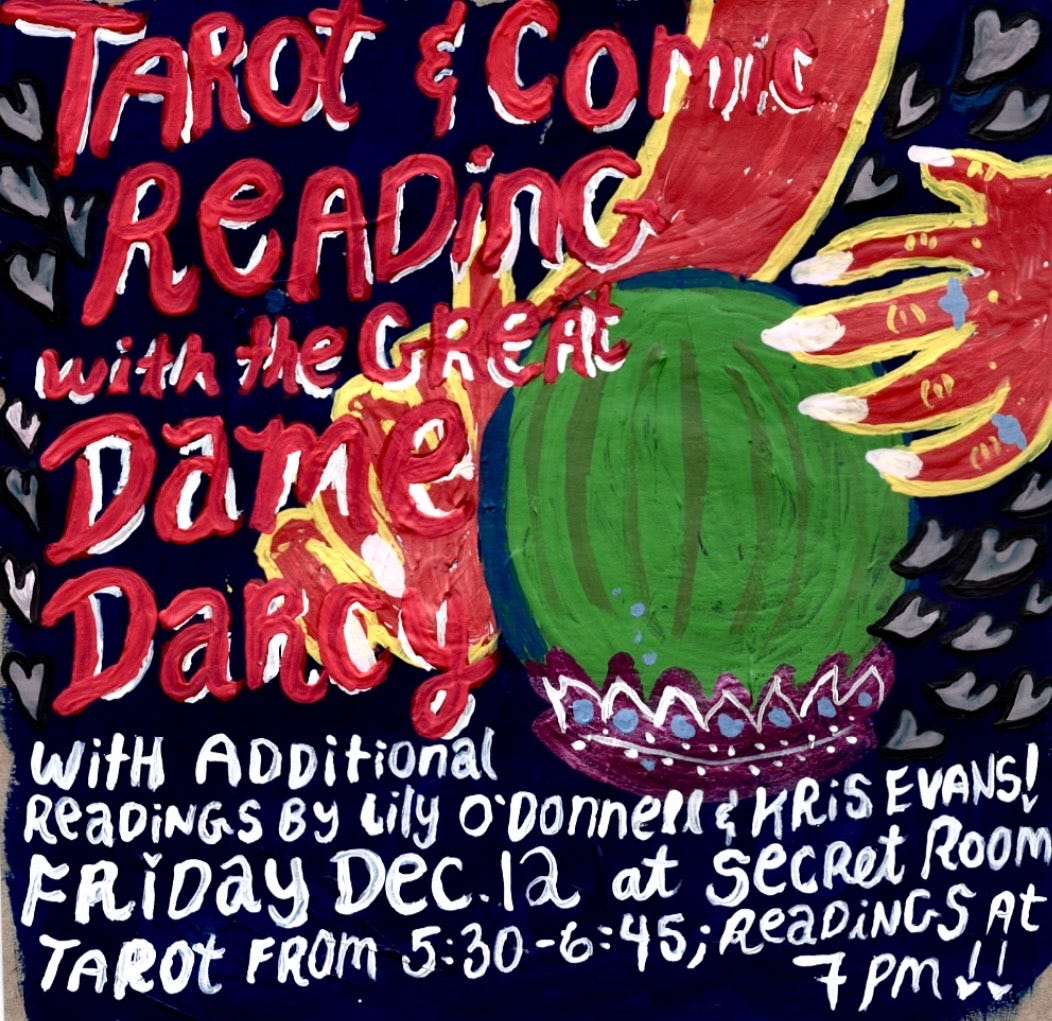 Tarot & Comic
Reading
with the Great
Dame
Darcy
With Additional
Readings by Lily O'Donnell & Kris Evans!
Friday Dec. 12 at Secret Room
Tarot from 5:30-6:45; Readings at
7 pm!!